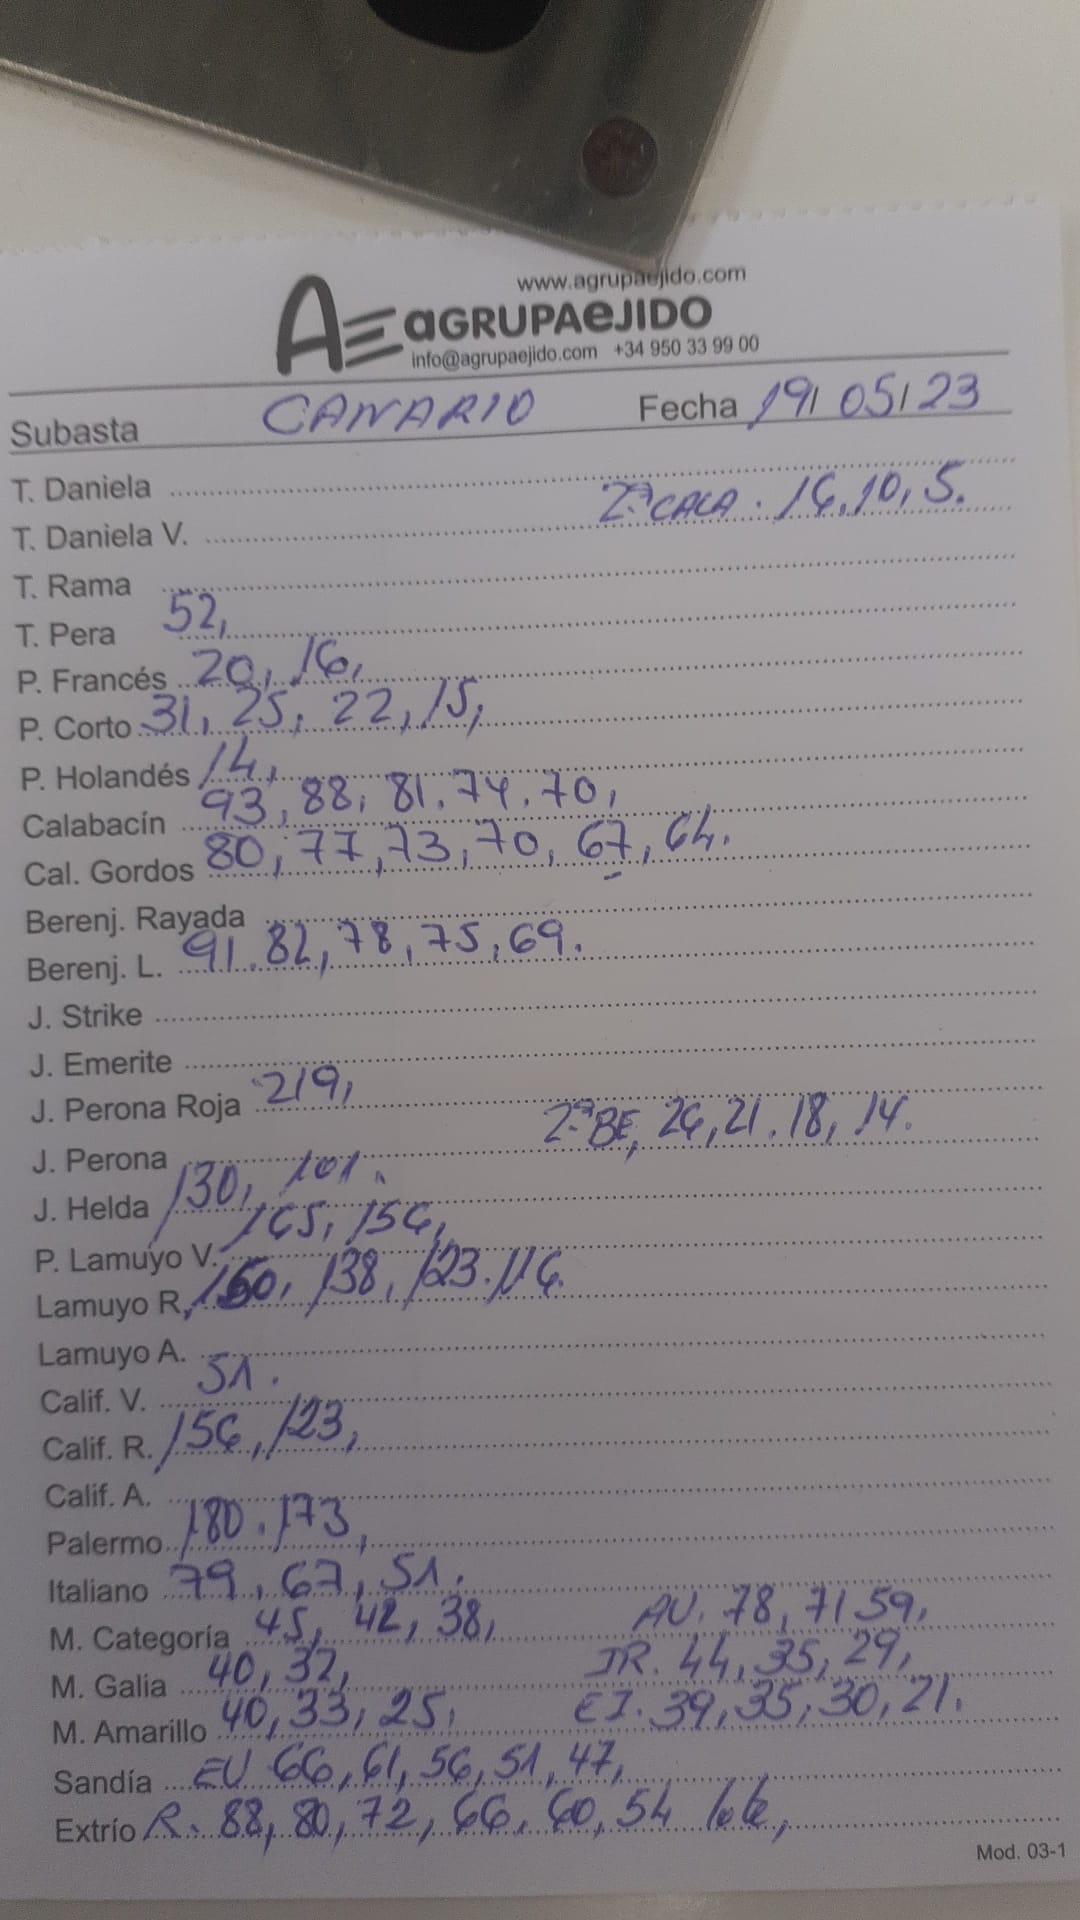 www.agrupaejido.com
AE aGRUPAeJIDO
info@agrupaejido.com +34 950 33 99 00
Subasta CANARIO Fecha 19/05/23
T. Daniela
T. Daniela V. 2ª CALA. 16, 10, 5.
T. Rama
T. Pera 52,
P. Francés 20, 16,
P. Corto 31, 25, 22, 15,
P. Holandés 14,
Calabacín 93, 88, 81, 74, 70,
Cal. Gordos 80, 77, 73, 70, 67, 64.
Berenj. Rayada
Berenj. L. 91. 82, 78, 75, 69.
J. Strike
J. Emerite
J. Perona Roja 219,
J. Perona 2ª BE, 26, 21. 18, 14.
J. Helda 130, 101.
P. Lamuyo V. 165, 156,
Lamuyo R. 150, 138, 123. 116.
Lamuyo A.
Calif. V. 51.
Calif. R. 156, 123,
Calif. A.
Palermo 180. 173,
Italiano 79, 67, 51.
M. Categoría 45, 42, 38, AU. 78, 71 59,
M. Galia 40, 32, JR. 44, 35, 29,
M. Amarillo 40, 33, 25, EI. 39, 35, 30, 21.
Sandía EU 66, 61, 56, 51, 47,
Extrío R. 88, 80, 72, 66, 60, 54
Mod. 03-1